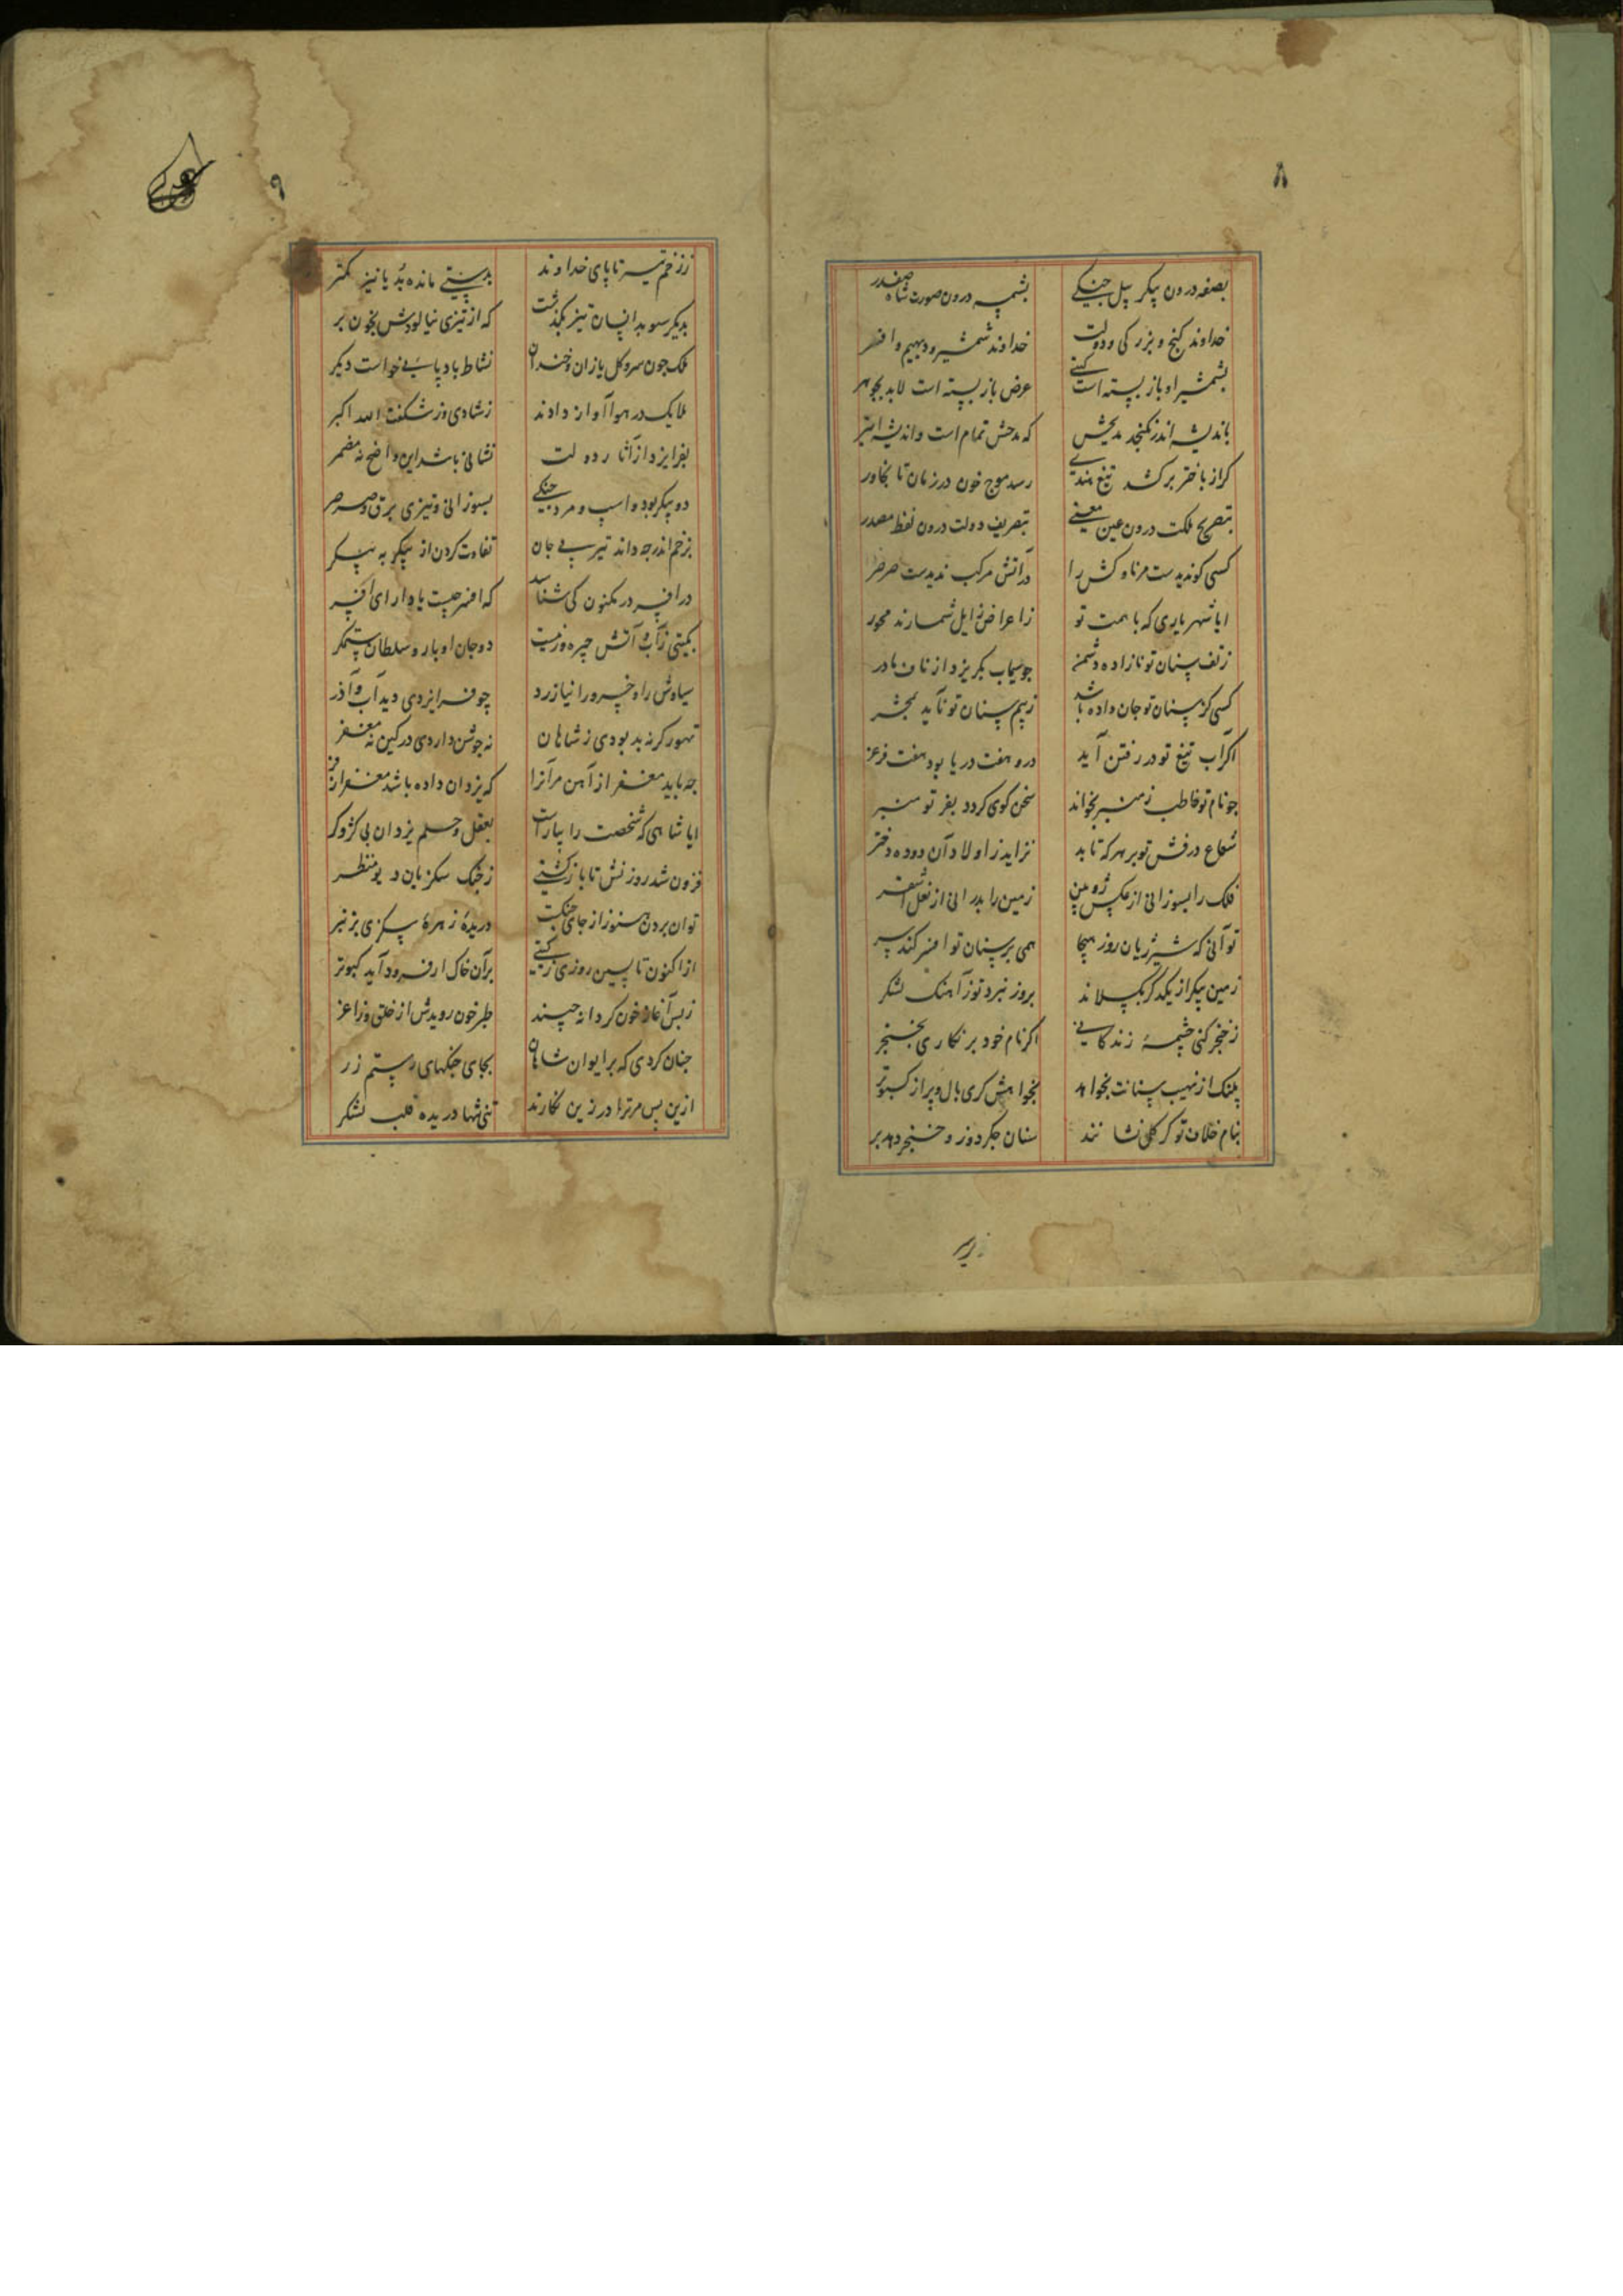 ۸
بصفه درون پیکر پیل جنگی بشمسه درون صورت شاه صفدر
خداوند کنج و بزرکی و دولت خداوند شمشیر و دیهیم و افسر
بشمشیر او باز بسته است کیتی عرض باز بسته است لابد بجوهر
باندیشه اندر نکنجد مدیحش که مدحش تمام است و اندیشه ابتر
کر از باختر برکشد تیغ هندی رسد موج خون در زمان تا بخاور
بتصریح ملکت درون عین معنی بتصریف دولت درون لفظ مصدر
کسی کو ندیدست مر ناوکش را در آتش مرکب ندیدست صرصر
ایا شهریاری که با همت تو ز اعراض زایل شمارند محور
ز تف سنان تو نازاده دشمن جو سیماب بکریزد از ناف مادر
کسی کز سنان تو جان داده باشد ز بیم سنان تو ناید بمحشر
اکر آب تیغ تو در رفتن آید درو هفت دریا بود هفت فرغر
جو نام تو خاطب ز منبر بخواند سخن کوی کردد بفر تو منبر
شعاع درفش تو بر هر که تابد نزاید ز اولاد آن دوده دختر
فلک را بسوزانی از عکس ژوپین زمین را بدرانی از نعل اشقر
تو آنی که شیر ژیان روز هیجا همی بر سنان تو افسر کند سر
زمین پیکر از یکدکر بکسلاند بروز نبرد تو ز آهنک لشکر
ز خنجر کنی چشمهٔ زندکانی اکر نام خود بر نکاری بخنجر
پلنک از نهیب سنانت بخواهد بخواهش کری بال و پر از کبوتر
بنام خلاف تو کر کل نشانند سنان جکردوز و خنجر دهد بر
۹
ز زخم تیر تا پای خداوند بدستی مانده بُد یا نیز کمتر
بدیکر سو بدانسان تیز بکذشت که از تیزی نیالودش بخون بر
ملک جون سرو کل یازان و خندان نشاط بادپائی خواست دیکر
ملایک در هوا آواز دادند ز شادی وز شکفت الله اکبر
بفر ایزد از آثار دولت نشانی باشد این واضح نه مضمر
دو پیکر بود و اسب و مرد جنکی بسوزانی و تیزی برق و صرصر
بزخم اندر جه داند تیر بی جان تفاوت کردن از پیکر به پیکر
در افسر در مکنون کی شناسد که افسر چیست یا دارای افسر
بکیتی ز آب و آتش چیره‌تر نیست دو جان اوبار و سلطان ستمکر
سیاوش را و خسرو را نیازرد چو فر ایزدی دید آب و آذر
تهور کر نه بد بودی ز شاهان نه جوشن داردی در کین نه مغفر
جه باید مغفر از آهن مر آنرا که یزدان داده باشد مغفر از فر
ایا شاهی که شخصت را بیاراست بعقل و حلم یزدان بی کژ و کر
فزون شد روزنش تا بازکشتی ز جنک سکزیان دیو منظر
توان بردن هنوز از جای جنکت دریدهٔ زهرهٔ سکزی بزنبر
از اکنون تا پسین روزی ز کیتی بر آن خاک ار فرود آید کبوتر
ز بس آغاز خون کر دانه چیند طبر خون رویدش از خلق و ژاغر
جنان کردی که بر ایوان شاهان بجای جنکهای رستم زر
ازین پس مر ترا در زین نکارند تنی تنها دریده قلب لشکر